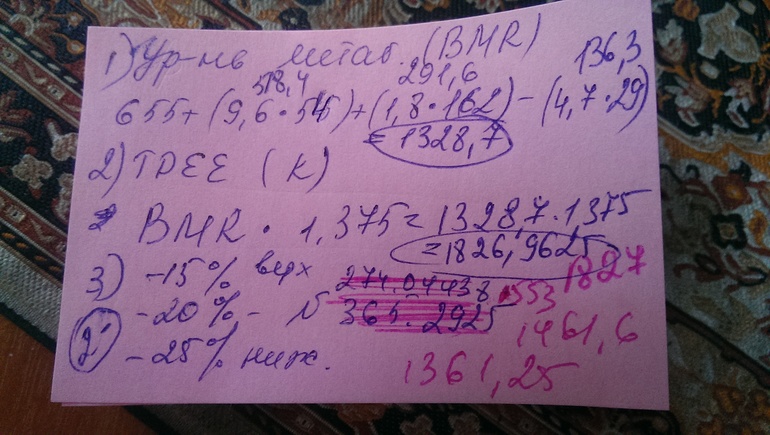 1) Ур-нь метаб. (BMR)
518,4 291,6 136,3
655+(9,6·54)+(1,8·162)-(4,7·29)
=1328,7
2) TDEE (К)
BMR·1,375=1328,7·1,375
=1826,9625
1827
3) -15% верх 274.04438 1553
-20% - N 365.2925 1461,6
-25% ниж. 1361,25